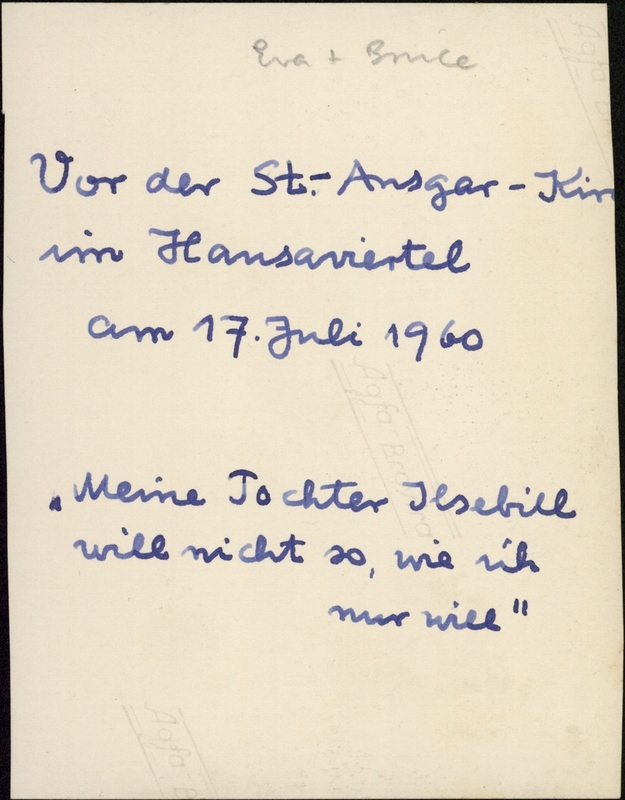 Eva + Bruce
Vor der St.-Ansgar-Kir
im Hansaviertel
am 17. Juli 1960
„Meine Tochter Ilsebill
will nicht so, wie ich
nur will"
Agfa Br
Agfa Brovira
Agfa B